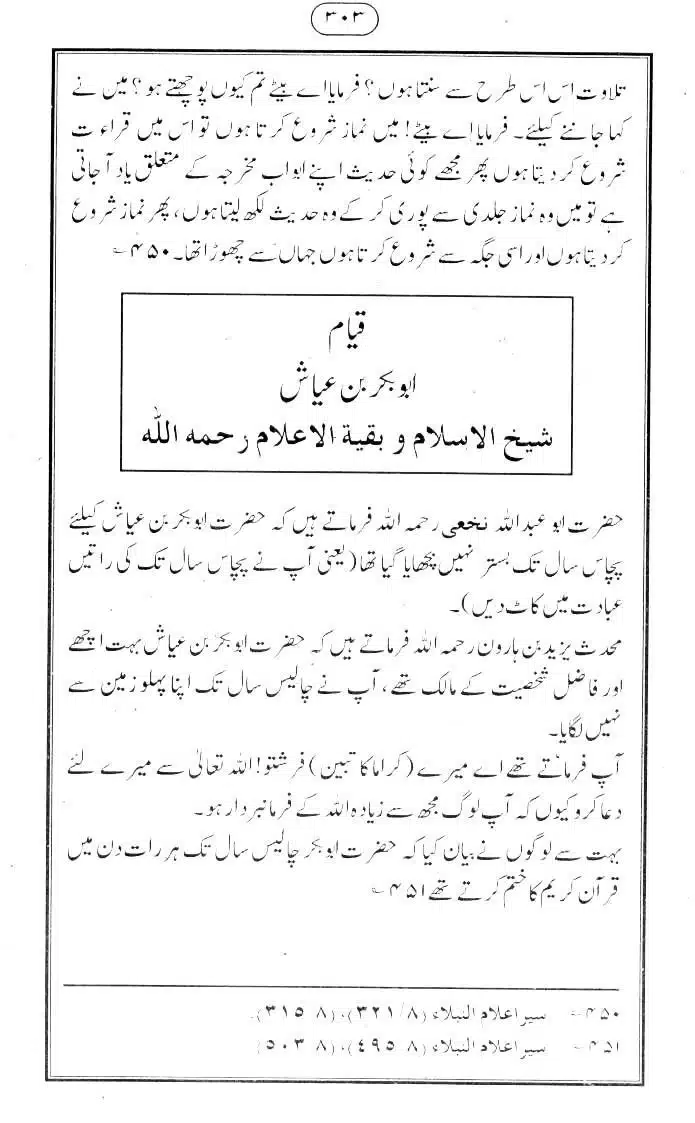 ۳۰۳
تلاوت اس اس طرح سے سنتا ہوں؟ فرمایا اے بیٹے تم کیوں پوچھتے ہو؟ میں نے
کہا جاننے کیلئے۔ فرمایا اے بیٹے! میں نماز شروع کرتا ہوں تو اس میں قراءت
شروع کر دیتا ہوں پھر مجھے کوئی حدیث اپنے ابواب مخرجہ کے متعلق یاد آ جاتی
ہے تو میں وہ نماز جلدی سے پوری کر کے وہ حدیث لکھ لیتا ہوں، پھر نماز شروع
کر دیتا ہوں اور اسی جگہ سے شروع کرتا ہوں جہاں سے چھوڑا تھا۔ ۴۵۰؎
قیام
ابوبکر بن عیاش
شیخ الاسلام و بقیة الاعلام رحمه الله
حضرت ابو عبداللہ نخعی رحمہ اللہ فرماتے ہیں کہ حضرت ابوبکر بن عیاش کیلئے
پچاس سال تک بستر نہیں بچھایا گیا تھا (یعنی آپ نے پچاس سال تک کی راتیں
عبادت میں کاٹ دیں)۔
محدث یزید بن ہارون رحمہ اللہ فرماتے ہیں کہ حضرت ابوبکر بن عیاش بہت اچھے
اور فاضل شخصیت کے مالک تھے، آپ نے چالیس سال تک اپنا پہلو زمین سے
نہیں لگایا۔
آپ فرماتے تھے اے میرے (کراما کاتبین) فرشتو! اللہ تعالیٰ سے میرے لئے
دعا کرو کیوں کہ آپ لوگ مجھ سے زیادہ اللہ کے فرمانبردار ہو۔
بہت سے لوگوں نے بیان کیا کہ حضرت ابوبکر چالیس سال تک ہر رات دن میں
قرآن کریم کا ختم کرتے تھے ۴۵۱؎
۴۵۰؎ سیر اعلام النبلاء (۳۲۱/۸)، (۳۱۵ ۸)۔
۴۵۱؎ سیر اعلام النبلاء (۴۹۵ ۸)، (۵۰۳ ۸)